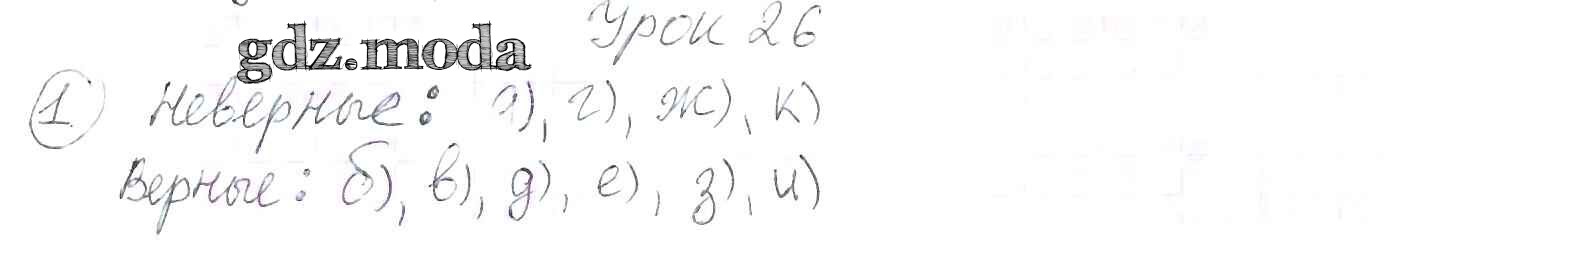 Урок 26
gdz.moda
1 Неверные: а), г), ж), к)
Верные: б), в), д), е), з), и)